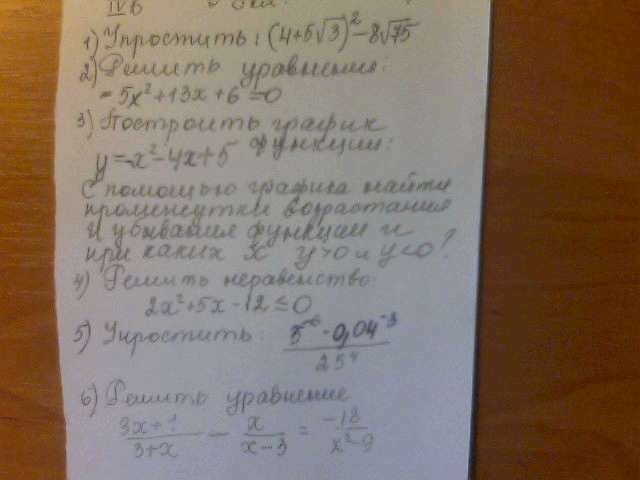 IV в
1) Упростить: (4+5√3)² - 8√75
2) Решить уравнения:
- 5x² + 13x + 6 = 0
3) Построить график
функции:
y = -x² - 4x + 5
С помощью графика найти
промежутки возрастания
и убывания функции и
при каких x y>0 и y<0?
4) Решить неравенство
2x² + 5x - 12 ≤ 0
5) Упростить: (5⁻⁶ · 0,04⁻³)/25⁴
6) Решить уравнение
(3x+1)/(3+x) - x/(x-3) = -18/(x²-9)